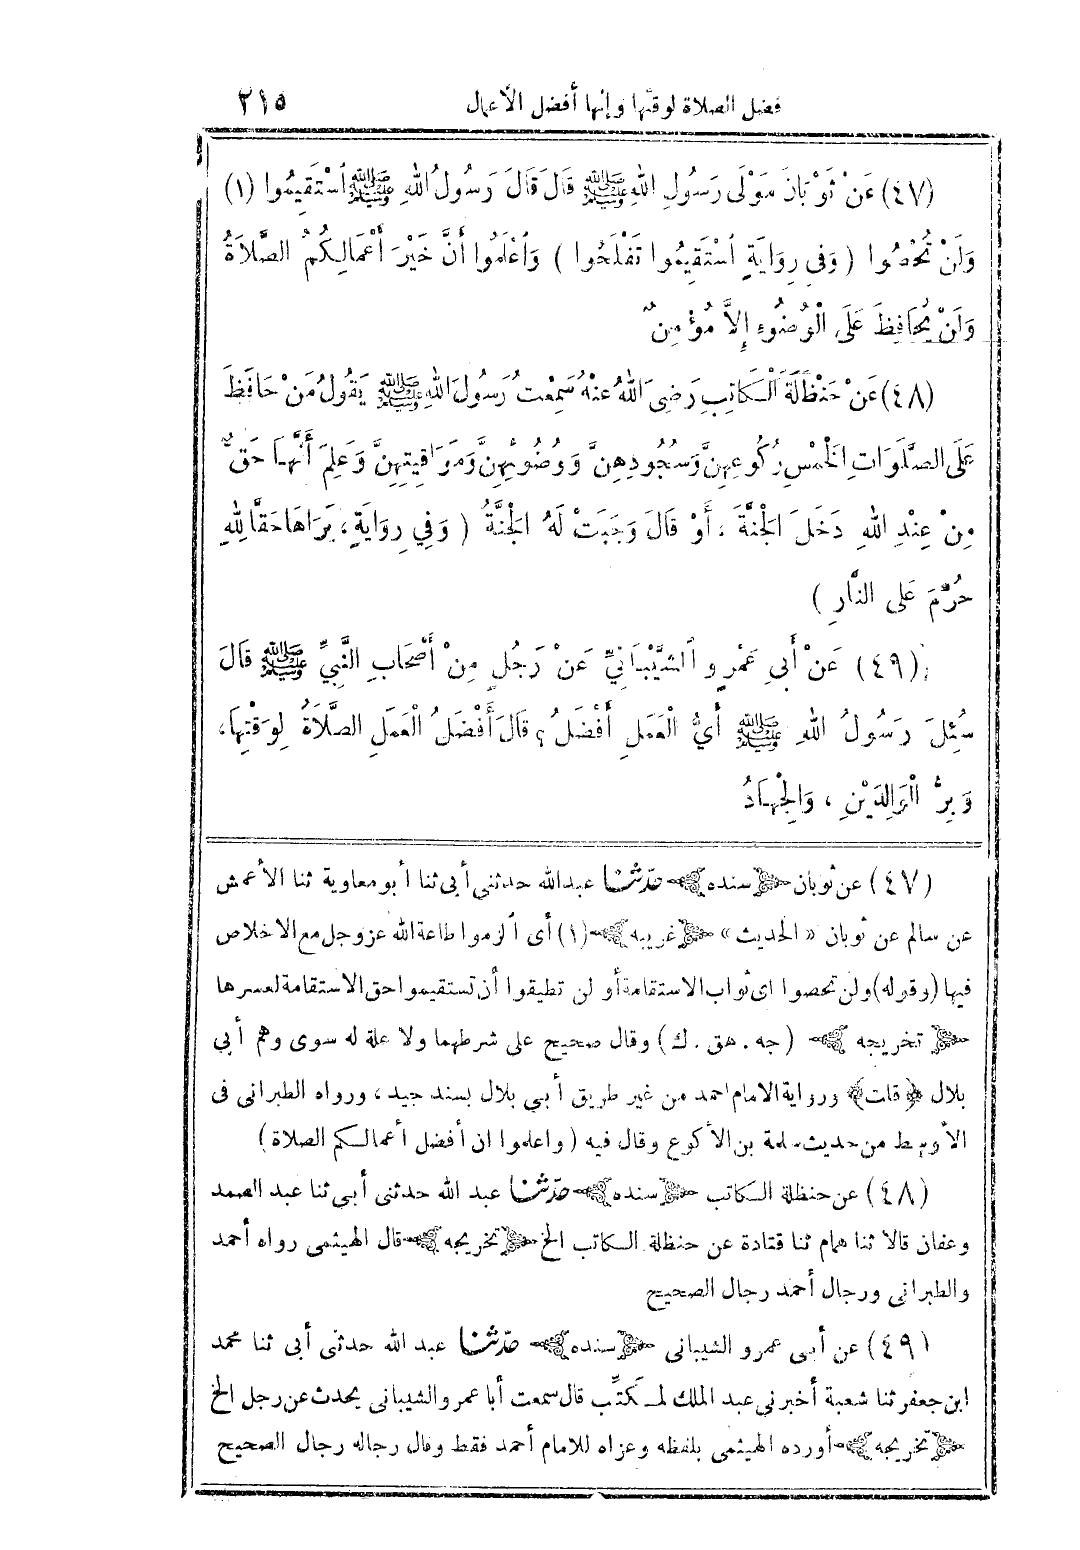 فضل الصلاة لوقتها وإنها أفضل الأعمال ٢١٥
(٤٧) عَنْ ثَوْبَانَ مَوْلَى رَسُولِ اللهِ ﷺ قَالَ قَالَ رَسُولُ اللهِ ﷺ اُسْتَقِيمُوا (١)
وَلَنْ تُحْصُوا (وَفِي رِوَايَةٍ اُسْتَقِيمُوا تُفْلِحُوا) وَاُعْلَمُوا أَنَّ خَيْرَ أَعْمَالِكُمُ الصَّلَاةُ
وَلَنْ يُحَافِظَ عَلَى الْوُضُوءِ إِلَّا مُؤْمِنٌ
(٤٨) عَنْ حَنْظَلَةَ الْكَاتِبِ رَضِيَ اللهُ عَنْهُ سَمِعْتُ رَسُولَ اللهِ ﷺ يَقُولُ مَنْ حَافَظَ
عَلَى الصَّلَوَاتِ الْخَمْسِ رُكُوعِهِنَّ وَسُجُودِهِنَّ وَوُضُوئِهِنَّ وَمَوَاقِيتِهِنَّ وَعَلِمَ أَنَّهَا حَقٌّ
مِنْ عِنْدِ اللهِ دَخَلَ الْجَنَّةَ ، أَوْ قَالَ وَجَبَتْ لَهُ الْجَنَّةُ (وَفِي رِوَايَةٍ ، يَرَاهَا حَقًّا لِلهِ
حُرِّمَ عَلَى النَّارِ)
(٤٩) عَنْ أَبِي عَمْرٍو اُلشَّيْبَانِيِّ عَنْ رَجُلٍ مِنْ أَصْحَابِ النَّبِيِّ ﷺ قَالَ
سُئِلَ رَسُولُ اللهِ ﷺ أَيُّ الْعَمَلِ أَفْضَلُ ؟ قَالَ أَفْضَلُ الْعَمَلِ الصَّلَاةُ لِوَقْتِهَا ،
وَبِرُّ الْوَالِدَيْنِ ، وَالْجِهَادُ
(٤٧) عن ثوبان ﴿سنده﴾ حدّثنا عبد الله حدثني أبي ثنا أبو معاوية ثنا الأعمش
عن سالم عن ثوبان «الحديث» ﴿غريبه﴾ (١) أى الزموا طاعة الله عز وجل مع الاخلاص
فيها (وقوله) ولن تحصوا اى ثواب الاستقامة أو لن تطيقوا أن تستقيموا حق الاستقامة لعسرها
﴿تخريجه﴾ (جه . هق . ك) وقال صحيح على شرطهما ولا علة له سوى وهم أبي
بلال ﴿قلت﴾ ورواية الامام احمد من غير طريق أبي بلال بسند جيد ، ورواه الطبرانى فى
الأوسط من حديث سلمة بن الأكوع وقال فيه (واعلموا ان أفضل أعمالكم الصلاة)
(٤٨) عن حنظلة الكاتب ﴿سنده﴾ حدّثنا عبد الله حدثنى أبى ثنا عبد الصمد
وعفان قالا ثنا همام ثنا قتادة عن حنظلة الكاتب الخ ﴿تخريجه﴾ قال الهيثمى رواه أحمد
والطبرانى ورجال أحمد رجال الصحيح
(٤٩) عن أبى عمرو الشيبانى ﴿سنده﴾ حدّثنا عبد الله حدثنى أبى ثنا محمد
ابن جعفر ثنا شعبة أخبرنى عبد الملك المكتّب قال سمعت أبا عمرو الشيبانى يحدث عن رجل الخ
﴿تخريجه﴾ أورده الهيثمى بلفظه وعزاه للامام أحمد فقط وقال رجاله رجال الصحيح